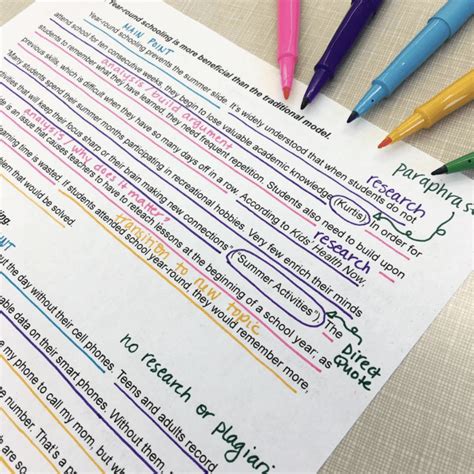 Year-round schooling is more beneficial than the traditional model.
MAIN POINT
Year-round schooling prevents the summer slide. It's widely understood that when students do not
attend school for ten consecutive weeks, they begin to lose valuable academic knowledge (Kurtis). In order for
research
paraphras
analysis/build argument
students to remember what they have learned, they need frequent repetition. Students also need to build upon
previous skills, which is difficult when they have so many days off in a row. According to Kids Health Now,
research
"Many students spend their summer months participating in recreational hobbies. Very few enrich their minds
activities that will keep their focus sharp or their brain making new connections" ("Summer Activities"). The
Direct
Quote
analysis why does it matter?
is an issue that causes teachers to have to reteach lessons at the beginning of a school year, as
learning time is wasted. If students attended school year-round, they would remember more,
transition to new topic
problem that would be solved.
POINT
the day without their cell phones. Teens and adults record
no research or plagiari
able data on their smart phones. Without them,
e my phone to call my mom, but
are so
Without